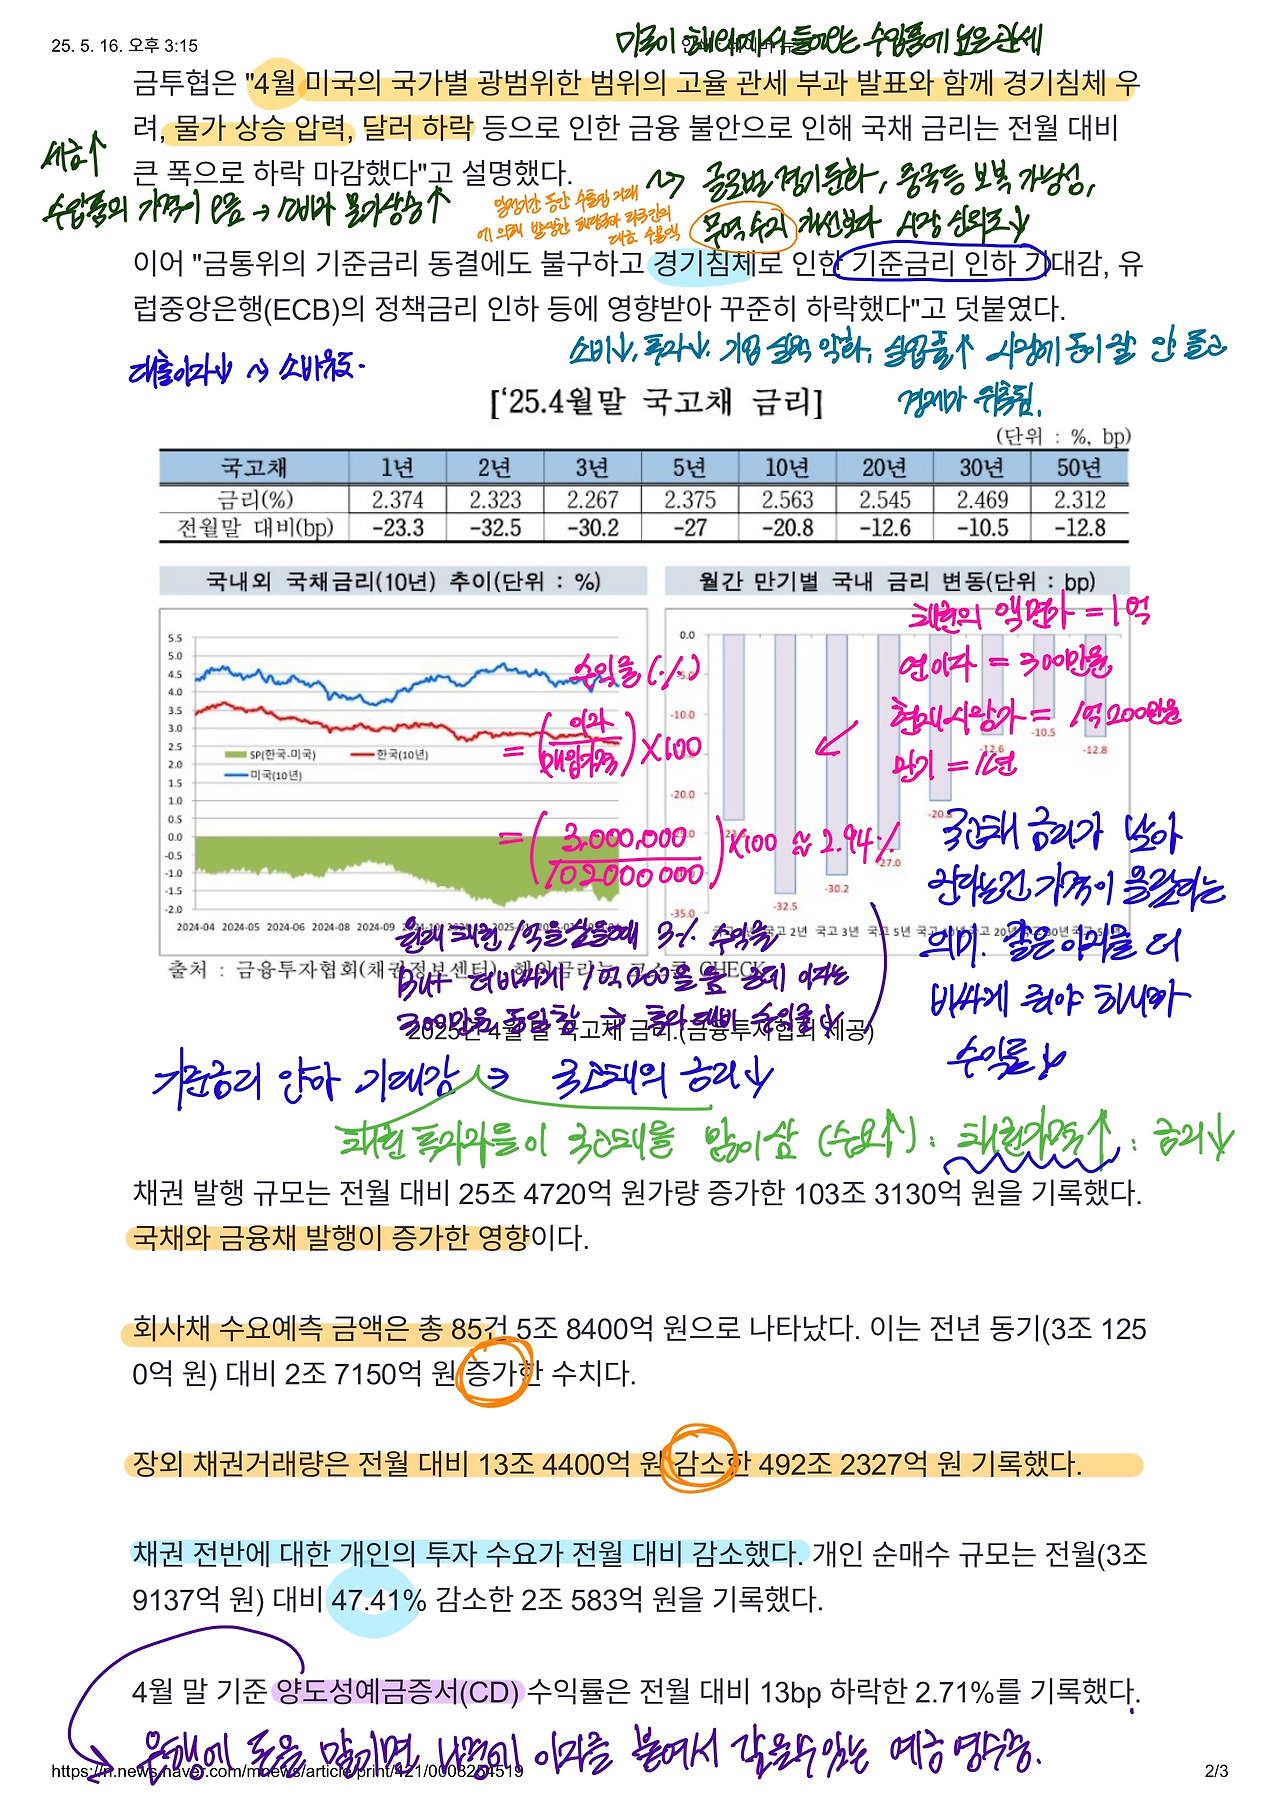 25. 5. 16. 오후 3:15
미국이 해외에서 들여오는 수입품에 높은 관세
금투협은 "4월 미국의 국가별 광범위한 범위의 고율 관세 부과 발표와 함께 경기침체 우
려, 물가 상승 압력, 달러 하락 등으로 인한 금융 불안으로 인해 국채 금리는 전월 대비
큰 폭으로 하락 마감했다"고 설명했다.
세금↑
수입품의 가격이 오름 → 소비자 물가상승↑
일정기간 동안 수출입 거래
에 의해 발생한 자국과 타국간의
대금 수불액
~> 글로벌 경기둔화, 중국등 보복 가능성,
무역수지 개선보다 시장 신뢰도↓
이어 "금통위의 기준금리 동결에도 불구하고 경기침체로 인한 기준금리 인하 기대감, 유
럽중앙은행(ECB)의 정책금리 인하 등에 영향받아 꾸준히 하락했다"고 덧붙였다.
대출이자↓ ~> 소비유도.
소비↓, 투자↓, 기업 실적 악화, 실업률↑ 시장에 돈이 잘 안 돌고
경제가 위축됨.
['25.4월말 국고채 금리]
(단위 : %, bp)
국고채 1년 2년 3년 5년 10년 20년 30년 50년
금리(%) 2.374 2.323 2.267 2.375 2.563 2.545 2.469 2.312
전월말 대비(bp) -23.3 -32.5 -30.2 -27 -20.8 -12.6 -10.5 -12.8
국내외 국채금리(10년) 추이(단위 : %)
5.5
5.0
4.5
4.0
3.5
3.0
2.5
2.0
1.5
1.0
0.5
0.0
-0.5
-1.0
-1.5
-2.0
SP(한국-미국) 한국(10년)
미국(10년)
2024-04 2024-05 2024-06 2024-07 2024-08 2024-09
월간 만기별 국내 금리 변동(단위 : bp)
0.0
-10.0
-20.0
-35.0
-32.5
-30.2
-27.0
-20.8
-12.6
-10.5
-12.8
국고 2년 국고 3년 국고 5년
채권의 액면가 = 1억
연이자 = 300만원
현재시장가 = 1억 200만원
만기 = 1년
수익률(%)
= (이자/매입가격) X100
= (3,000,000/102000000) X100 ≈ 2.94%
국고채 금리가 낮아
진다는건 가격이 올랐다는
의미. 같은 이자를 더
비싸게 줘야 하니까
수익률↓
원래 채권 1억을 샀을때 3% 수익률
But 더 비싸게 1억 200을 줬는데 이자는
300만원 동일함 → 투자 대비 수익률↓
출처 : 금융투자협회(채권정보센터), 해외금리는 코스콤 CHECK
2025년 4월 말 국고채 금리.(금융투자협회 제공)
기준금리 인하 기대감 → 국고채의 금리↓
채권 투자자들이 국고채를 많이삼 (수요↑) : 채권가격↑ : 금리↓
채권 발행 규모는 전월 대비 25조 4720억 원가량 증가한 103조 3130억 원을 기록했다.
국채와 금융채 발행이 증가한 영향이다.
회사채 수요예측 금액은 총 85건 5조 8400억 원으로 나타났다. 이는 전년 동기(3조 125
0억 원) 대비 2조 7150억 원 증가한 수치다.
장외 채권거래량은 전월 대비 13조 4400억 원 감소한 492조 2327억 원 기록했다.
채권 전반에 대한 개인의 투자 수요가 전월 대비 감소했다. 개인 순매수 규모는 전월(3조
9137억 원) 대비 47.41% 감소한 2조 583억 원을 기록했다.
4월 말 기준 양도성예금증서(CD) 수익률은 전월 대비 13bp 하락한 2.71%를 기록했다.
은행에 돈을 맡기면 나중에 이자를 붙여서 갚을수있는 예금 영수증.
https://n.news.naver.com/mnews/article/print/421/0008254519
2/3